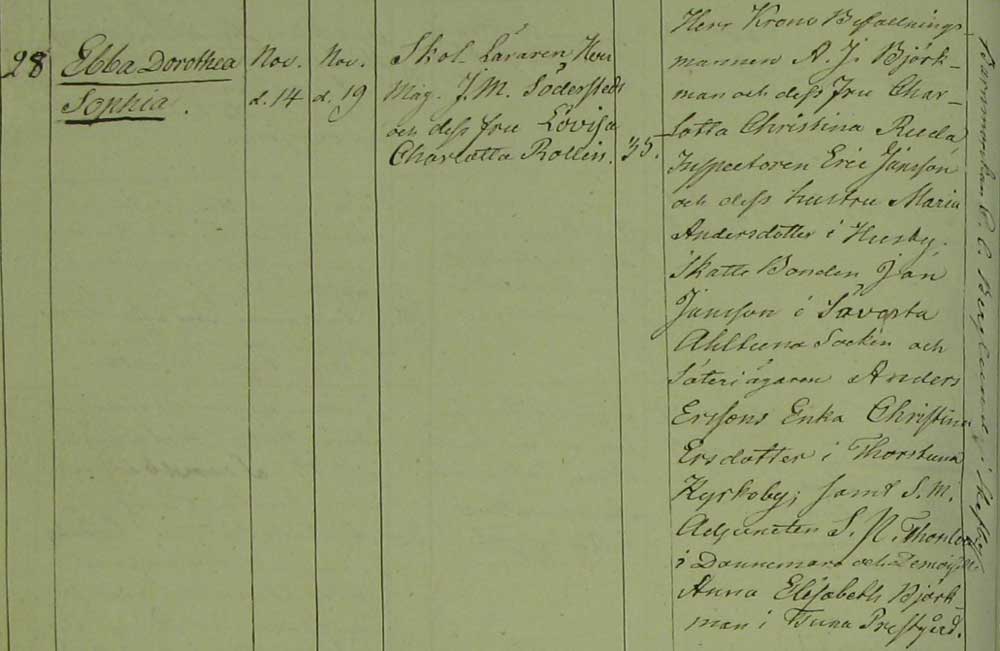 28
Ebba Dorothea
Sophia.
Nov.
d. 14
Nov.
d. 19
Skol Läraren Herr
Mag. J. M. Söderstedt
och dess fru Lovisa
Charlotta Rollin.
35.
Herr Krono Befallnings-
mannen A. J. Björk-
man och dess Fru Char-
lotta Christina Ruda
Inspectoren Eric Jansson
och dess hustru Maria
Andersdotter i Husby.
Skatte Bonden Jan
Jansson i Säversta
Ahltuna Socken och
Säteri ägaren Anders
Erssons Enka Christina
Ersdotter i Thorstuna
Kyrkoby; samt S. M.
Adjuncten S. N.
i Dannemora och Demoiselle
Anna Elisabeth Björk-
man i Tuna Prestgård.
Barnmorskan